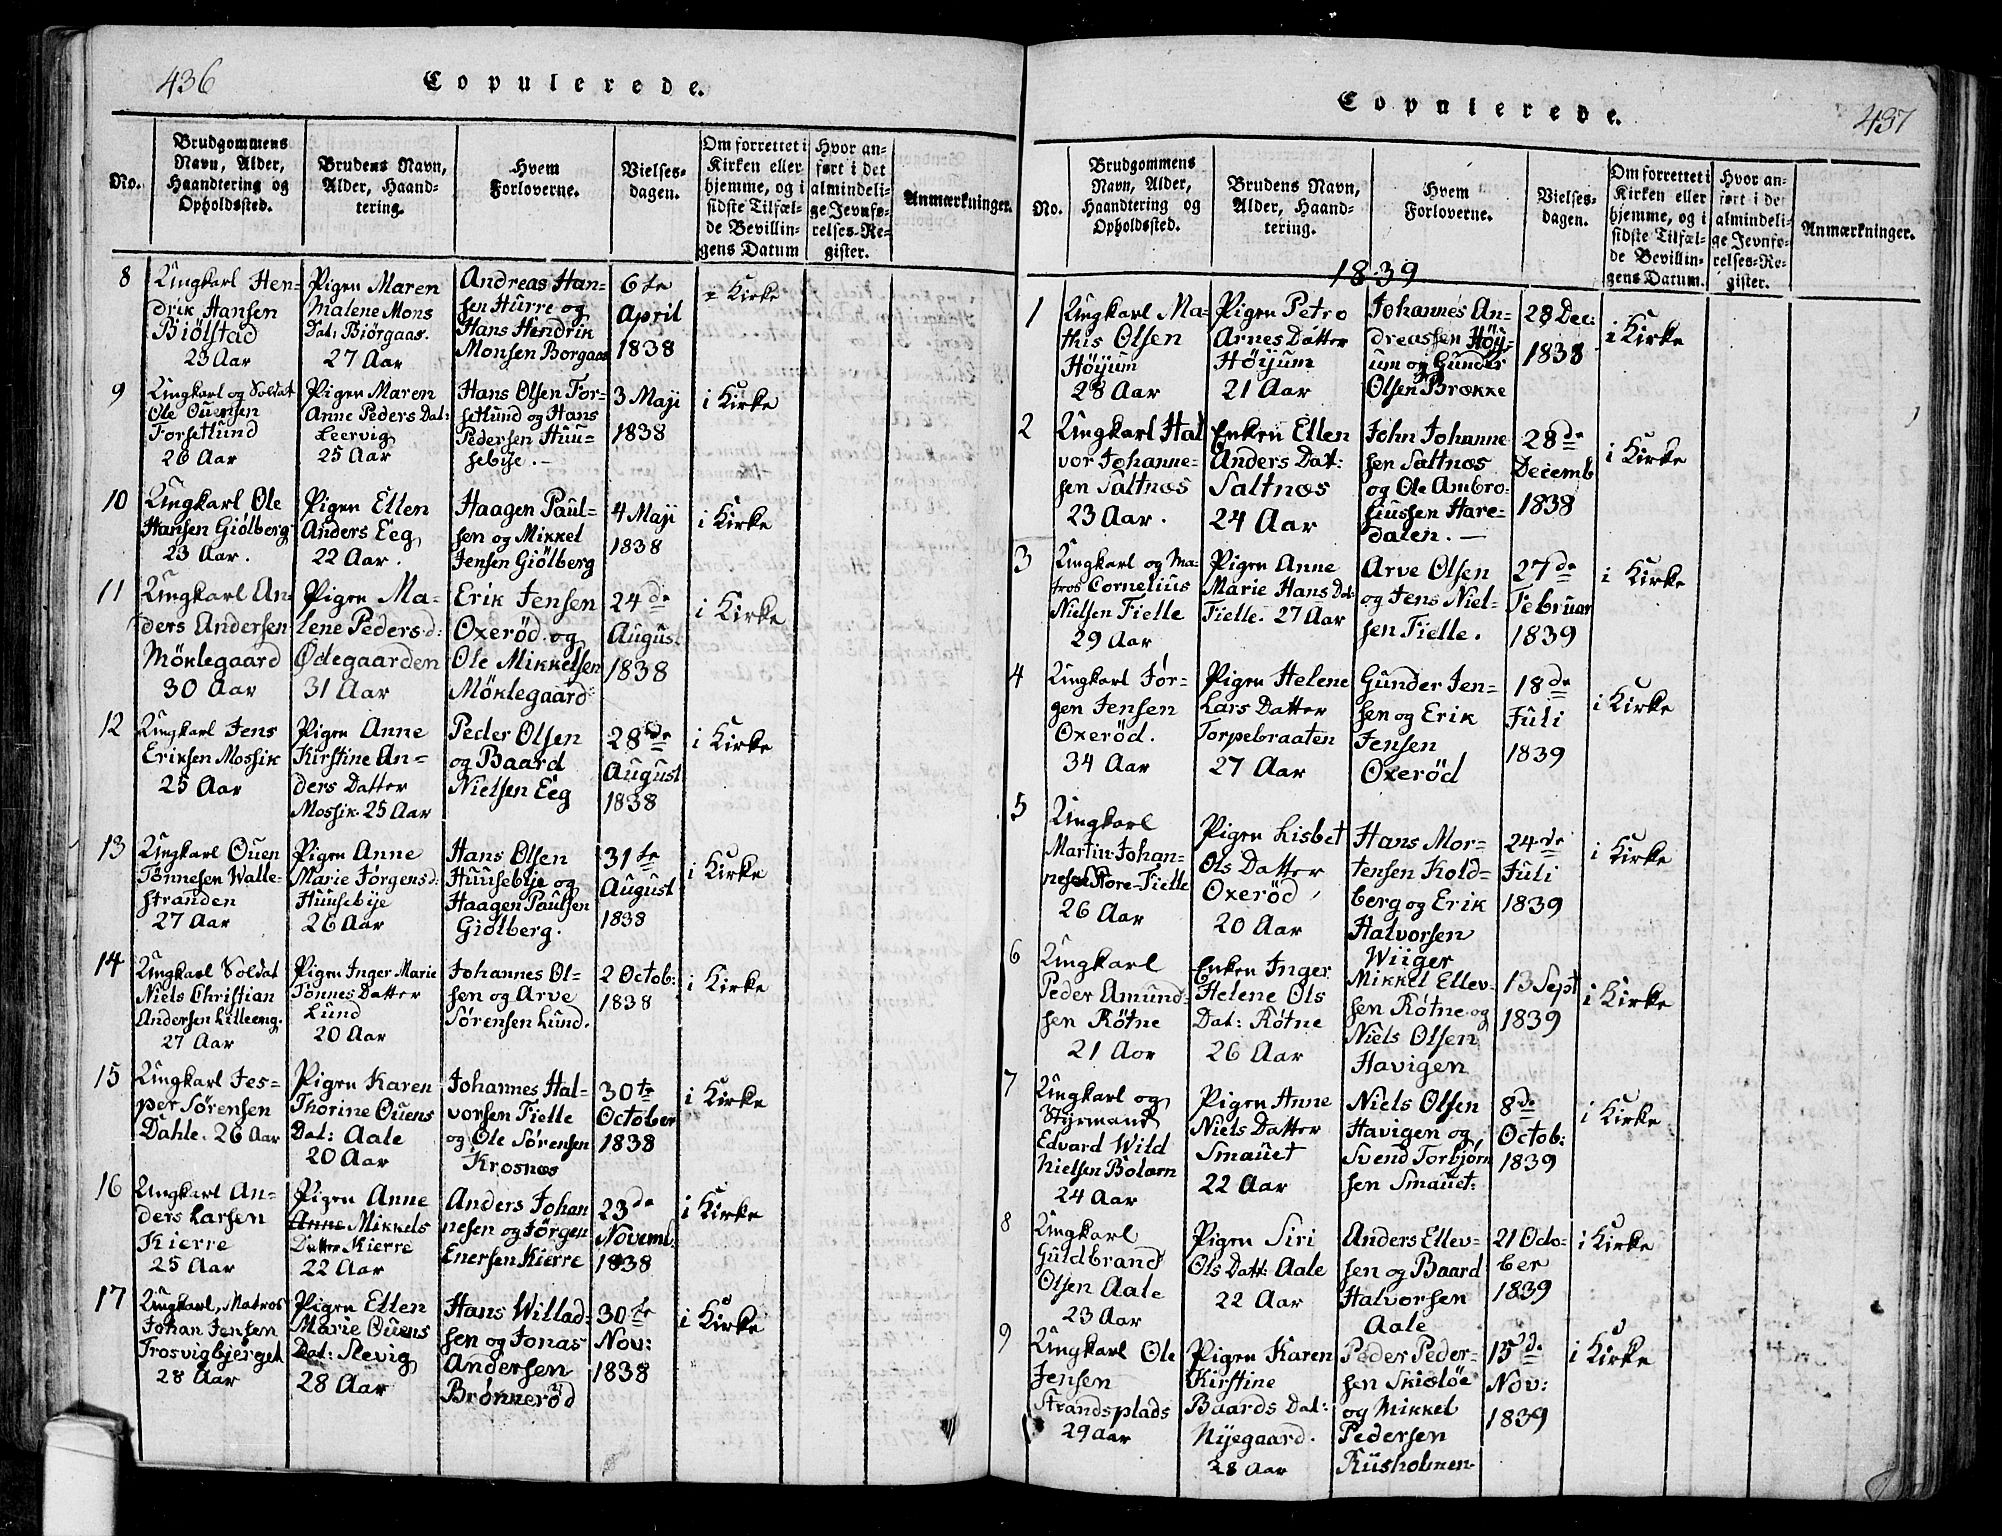 436
Copulerede.
No.
Brudgommens
Navn, Alder,
Haandtering og
Opholdssted.
Brudens Navn,
Alder, Haand-
tering.
Hvem
Forloverne.
Vielses-
dagen.
Om forrettet i
Kirken eller
hjemme, og i
sidste Tilfæl-
de Bevillin-
gens Datum
Hvor an-
ført i det
almindeli-
ge Jevnfø-
relses-Re-
gister.
Anmærkninger.
8
Ungkarl Hen-
drik Hansen
Biölstad
23 Aar
Pigen Maren
Malene Mons
Dat: Biörgaas.
27 Aar
Andreas Han-
sen Hurre og
Hans Hendrik
Monsen Borgaas
6te
April
1838
i Kirke
9
Ungkarl og Soldat
Ole Ouensen
Forsetlund
26 Aar
Pigen Maren
Anne Peders Dat:
Leervig
25 Aar
Hans Olsen For-
setlund og Hans
Pedersen Huu-
sebye.
3 Maji
1838
i Kirke
10
Ungkarl Ole
Hansen Giölberg
23 Aar.
Pigen Ellen
Anders Eeg
22 Aar.
Haagen Paul-
sen og Mikkel
Jensen Giölberg
4 Maji
1838
i Kirke
11
Ungkarl An-
ders Andersen
Möklegaard
30 Aar
Pigen Ma-
lene Peders d:
Ödegaarden
31 Aar
Erik Jensen
Oxeröd og
Ole Mikkelsen
Möklegaard
24de
August
1838
i Kirke
12
Ungkarl Jens
Eriksen Mossik
25 Aar
Pigen Anne
Kirstine An-
ders Datter
Mossik. 25 Aar
Peder Olsen
og Baard
Nielsen Eeg
28de
August
1838
i Kirke
13
Ungkarl Ouen
Tönnesen Walle-
stranden
27 Aar
Pigen Anne
Marie Jörgens d:
Huusebye
26 Aar
Hans Olsen
Huusebye og
Haagen Paulsen
Giölberg.
31te
August
1838
i Kirke
14
Ungkarl Soldat
Niels Christian
Andersen Lilleeng.
27 Aar
Pigen Inger Marie
Tönnes Datter
Lund
20 Aar
Johannes Ol-
sen og Arve
Sörensen Lund.
2 Octob:
1838
i Kirke
15
Ungkarl Jes-
per Sörensen
Dahle. 26 Aar
Pigen Karen
Thorine Ouens
Dat: Aale
20 Aar
Johannes Hal-
vorsen Fielle
og Ole Sörensen
Krosnæs
30te
October
1838
i Kirke
16
Ungkarl An-
ders Larsen
Kierre
25 Aar
Pigen Anne
Anne Mikkels
Datter Kierre
22 Aar
Anders Johan
nesen og Jörgen
Enersen Kierre
23de
Novemb:
1838
i Kirke
17
Ungkarl, Matros
Johan Jensen
Trosvigbjerget
28 Aar
Pigen Ellen
Marie Ouens
Dat: Slevig
28 Aar
Hans Willad-
sen og Jonas
Andersen
Brönneröd
30te
Nov:
1838
i Kirke
437
Copulerede.
No.
Brudgommens
Navn, Alder,
Haandtering og
Opholdssted.
Brudens Navn,
Alder, Haand-
tering.
Hvem
Forloverne.
Vielses-
dagen.
Om forrettet i
Kirken eller
hjemme, og i
sidste Tilfæl-
de Bevillin-
gens Datum.
Hvor an-
ført i det
almindeli-
ge Jevnfø-
relses-Re-
gister.
Anmærkninger.
1839
1
Ungkarl Ma-
this Olsen
Höyum
28 Aar
Pigen Petro
Arnes Datter
Höyum
21 Aar
Johannes An-
dreassen Höy-
um og Gunder
Olsen Brække
28 Dec:
1838
i Kirke
2
Ungkarl Hal
vor Johanne-
sen Saltnæs
23 Aar.
Enken Ellen
Anders Dat:
Saltnæs
24 Aar
John Johanne
sen Saltnæs
og Ole Ambro-
siussen Hare-
dalen.
28de
Decemb
1838
i Kirke
3
Ungkarl og Ma-
tros Cornelius
Nielsen Fielle
29 Aar
Pigen Anne
Marie Hans Dat:
Fielle. 27 Aar
Arve Olsen
og Jens Niel-
sen Fielle.
27de
Februar
1839
i Kirke
4
Ungkarl Jör-
gen Jensen
Oxeröd.
34 Aar
Pigen Helene
Lars Datter
Torpebraaten
27 Aar
Gunder Jen-
sen og Erik
Jensen
Oxeröd
18de
Juli
1839
i Kirke
5
Ungkarl
Martin Johan-
nesen Store-Fielle
26 Aar
Pigen Lisbet
Ols Datter
Oxeröd
20 Aar
Hans Mor-
tensen Kold-
berg og Erik
Halvorsen
Wiiger
24de
Juli
1839
i Kirke
6
Ungkarl
Peder Amund-
sen Rötne
21 Aar
Enken Inger
Helene Ols
Dat: Rötne
26 Aar
Mikkel Ellev-
sen Rötne og
Niels Olsen
Havigen
13 Sept
1839
i Kirke
7
Ungkarl og
Styrmand
Edvard Wild
Nielsen Bolærn
24 Aar
Pigen Anne
Niels Datter
Smauet
22 Aar
Niels Olsen
Havigen og
Svend Torbjörn
sen Smauet:
8de
Octob:
1839
i Kirke
8
Ungkarl
Guldbrand
Olsen Aale
23 Aar
Pigen Siri
Ols Datt: Aale
22 Aar
Anders Ellev-
sen og Baard
Halvorsen
Aale
21 Octo-
ber
1839
i Kirke
9
Ungkarl Ole
Jensen
Strandsplads
29 Aar
Pigen Karen
Kirstine
Baards Dat:
Nyegaard.
28 Aar
Peder Peder-
sen Skislöe
og Mikkel
Pedersen
Riisholmen
15de
Nov:
1839
i Kirke